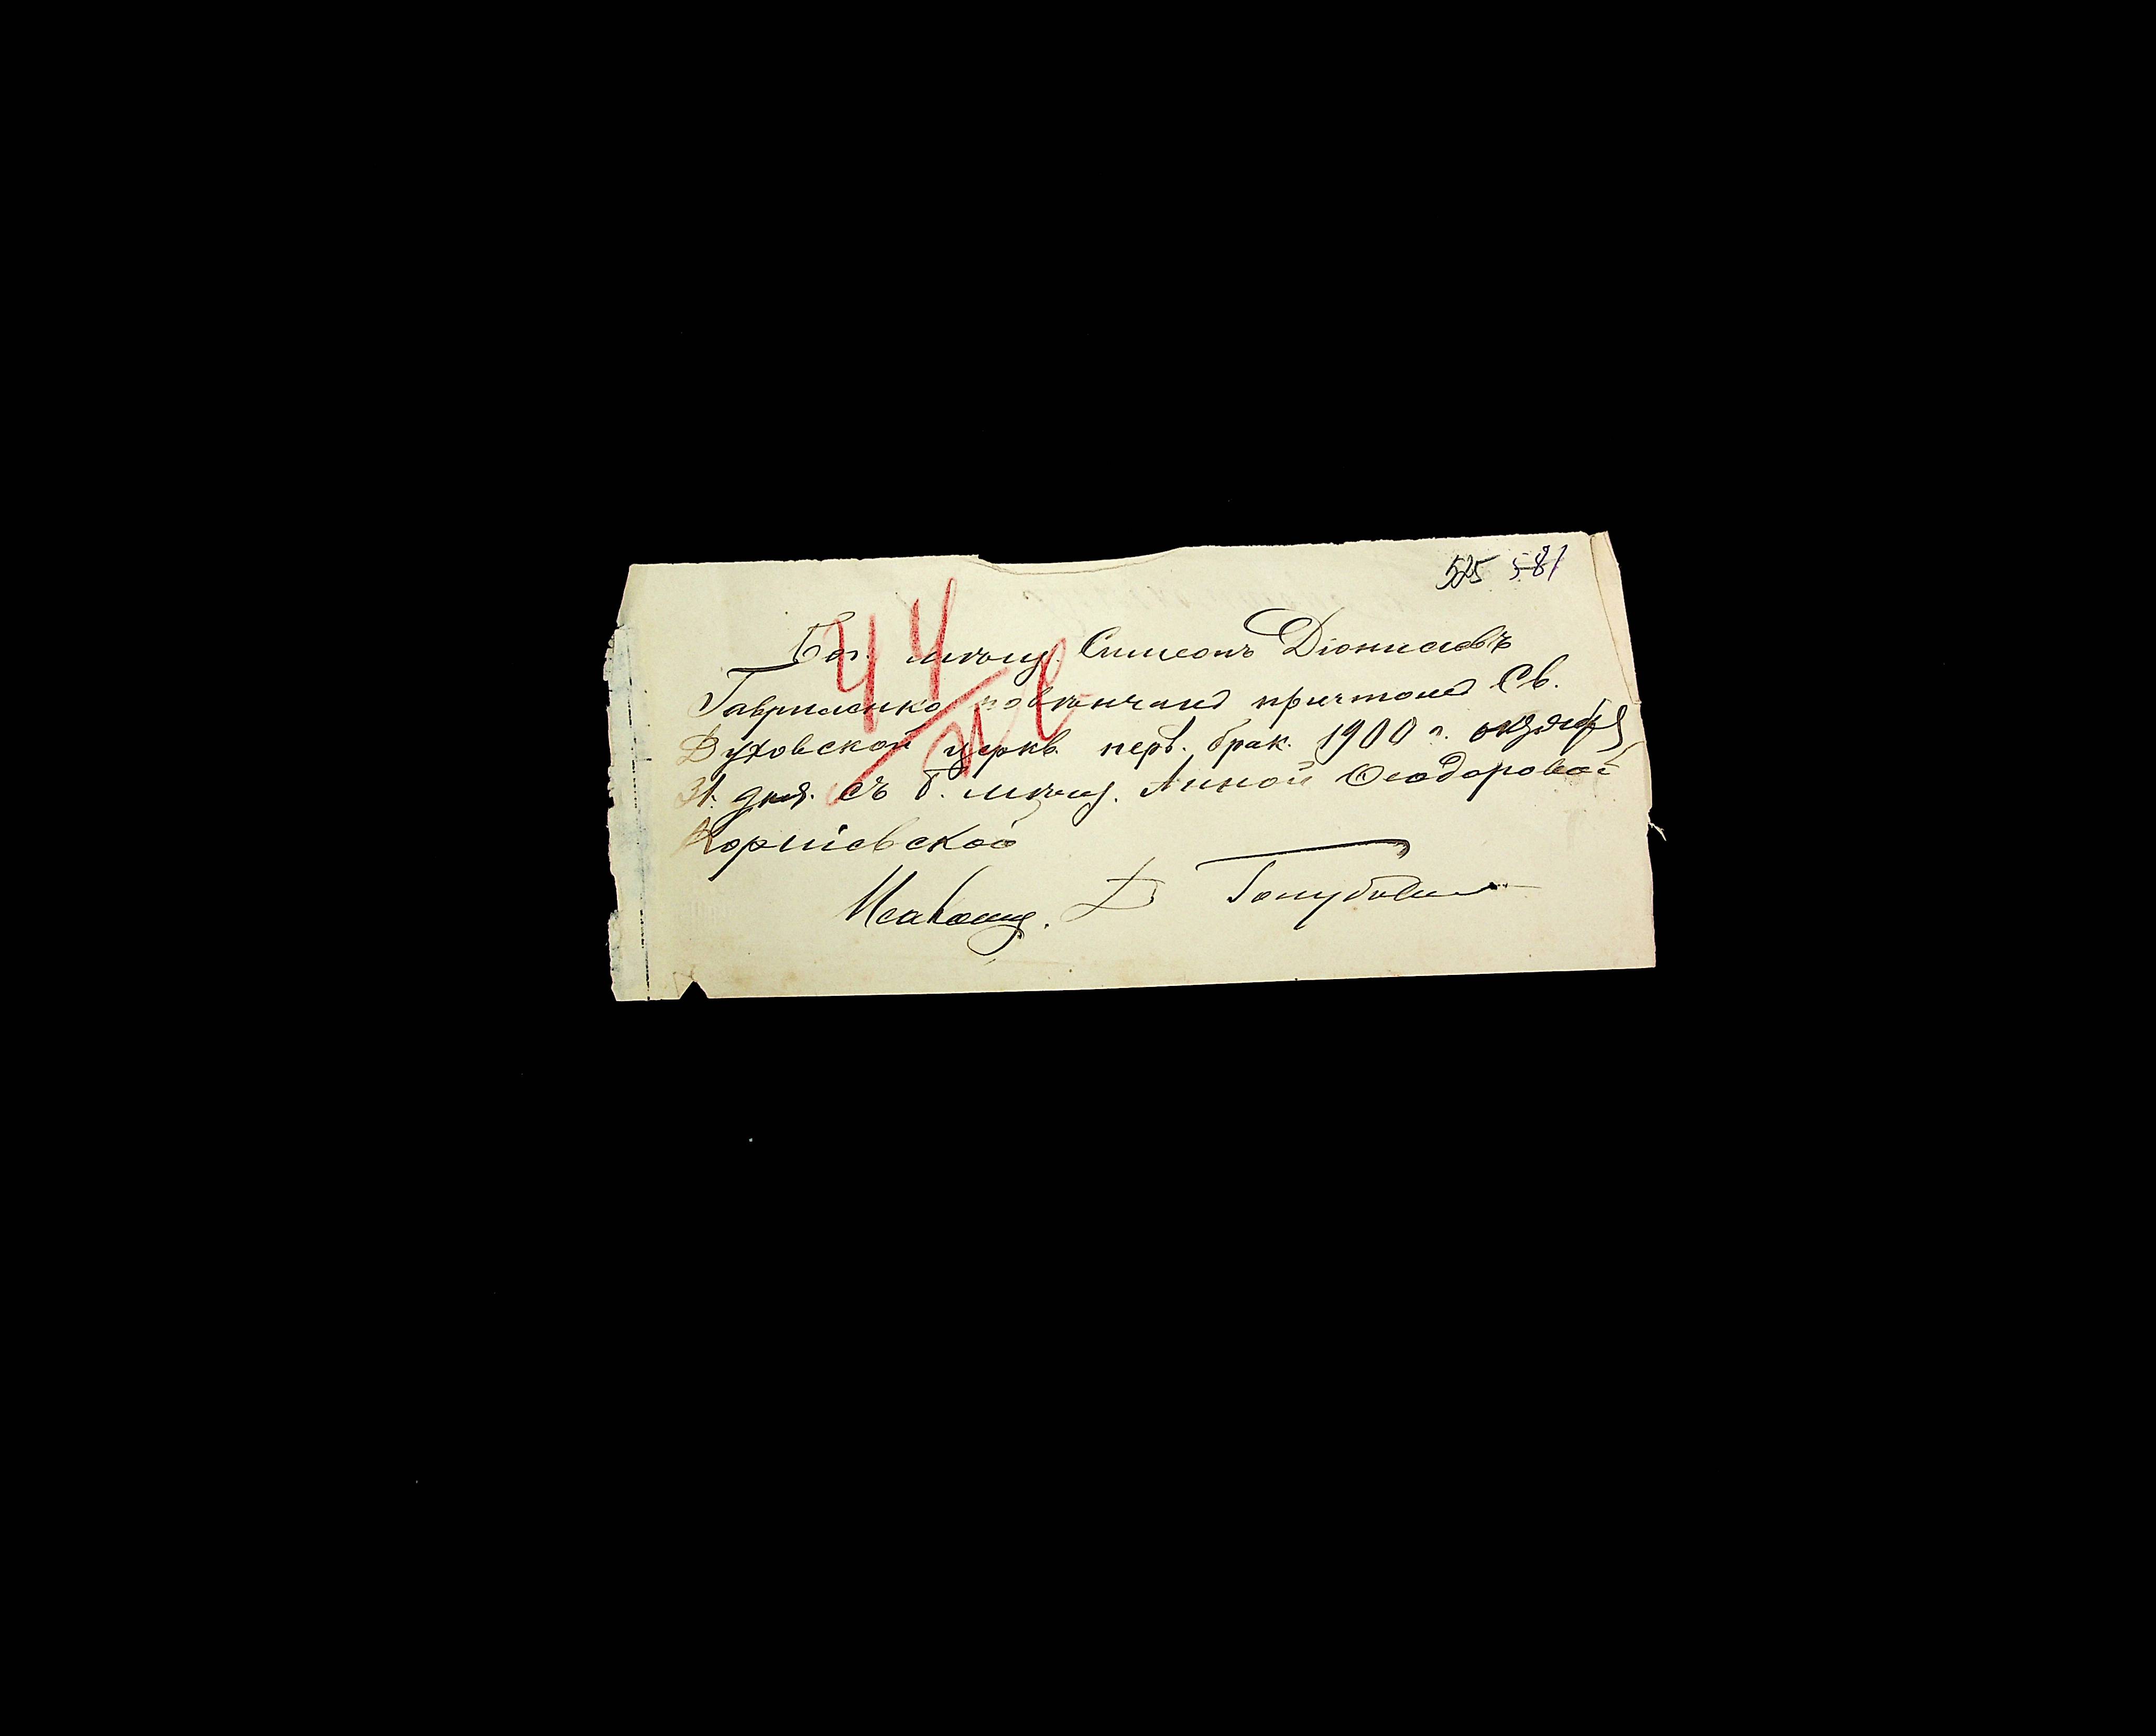 525 581
44
Бог. мѣщ. Симеонъ Діонисіевъ
Гавриленко повѣнчанъ причтомъ Св.
Духовской церкв. перв. брак. 1900 г. октября
31. дня. съ б. мѣщ. Анной Ѳеодоровой
Коршевской
Псаломщ. Голубович